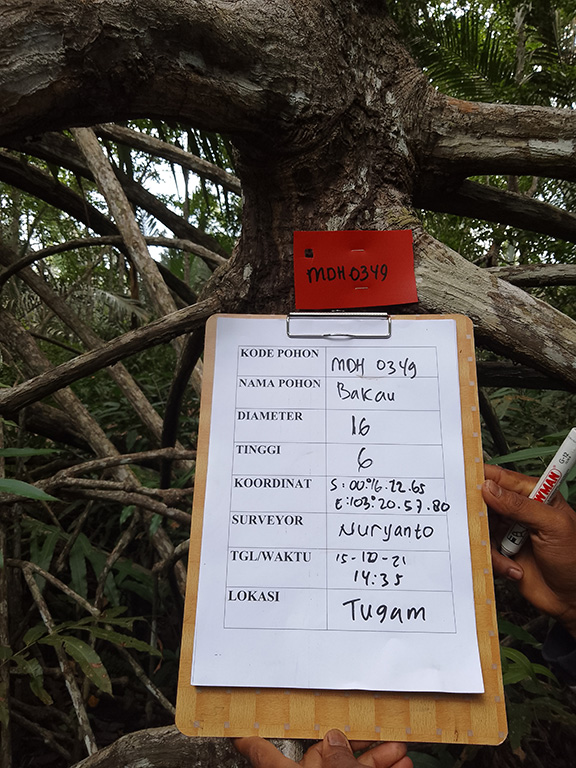 MDH 0349
KODE POHON MDH 0349
NAMA POHON Bakau
DIAMETER 16
TINGGI 6
KOORDINAT S: 00°.16.22.65
E:103°.20.57.80
SURVEYOR Nuryanto
TGL/WAKTU 15-10-21
14:35
LOKASI Tugam
G-12